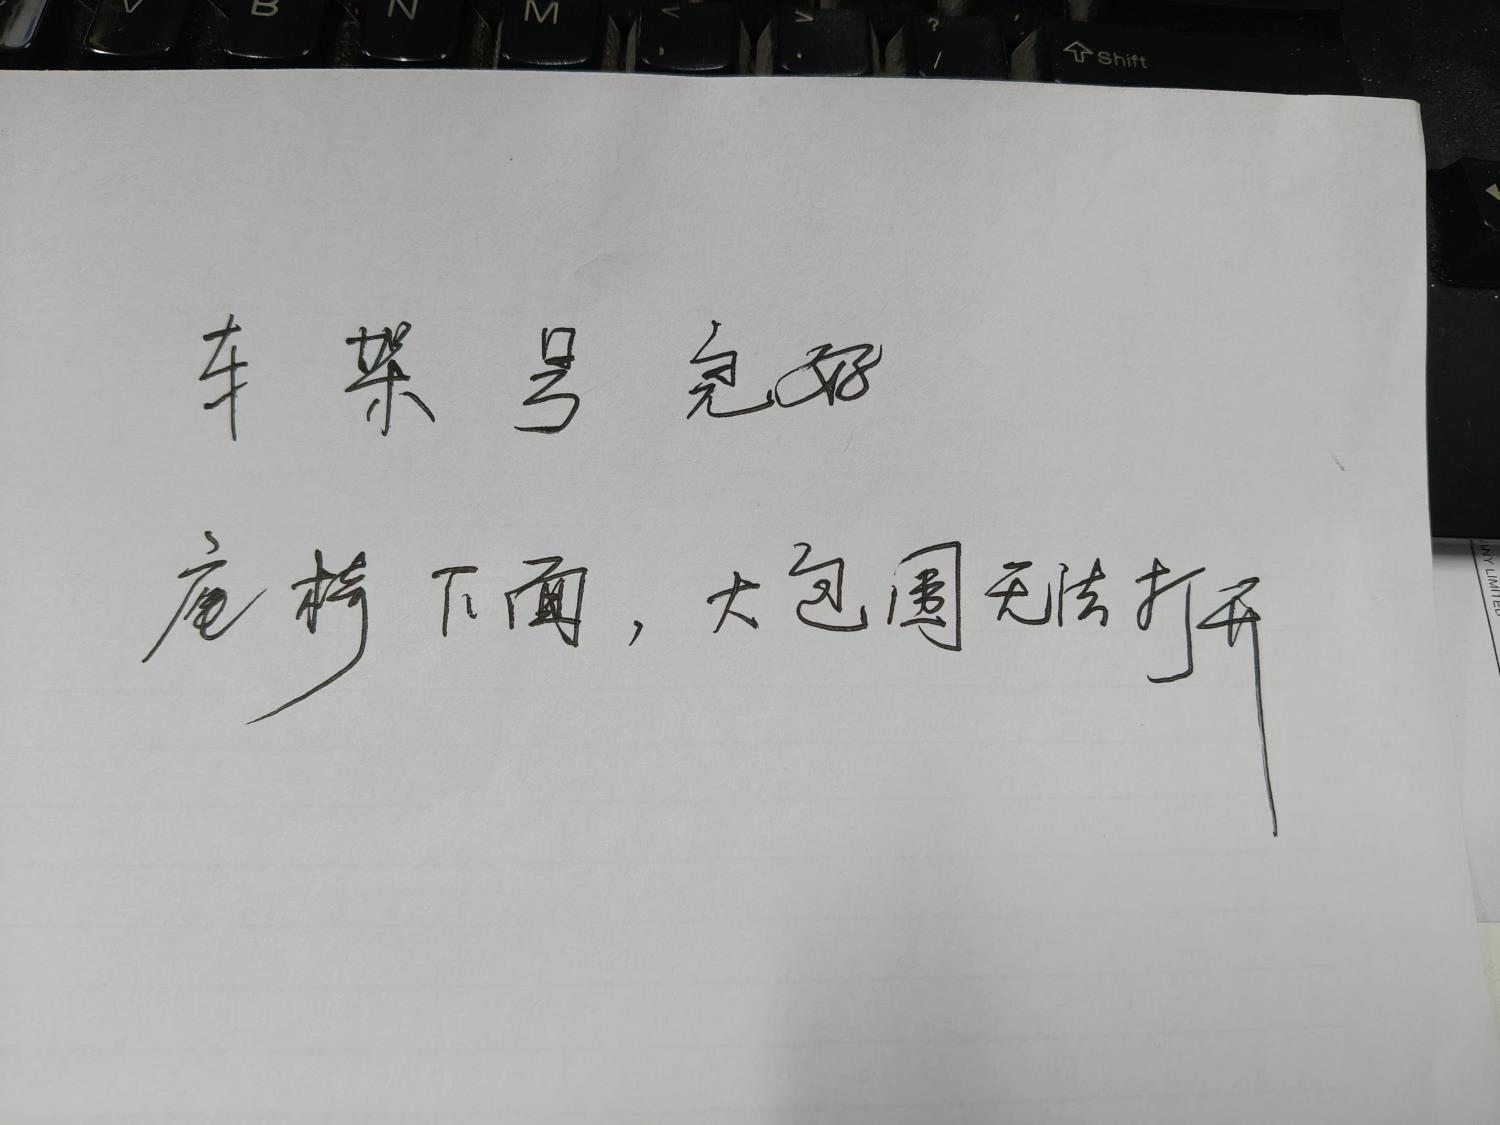 V B N M < , > . ? / Shift
车架号完好
座椅下面，大包围无法打开
ANY LIMITED